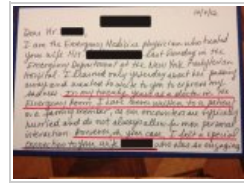 Dear Mr
I am the Emergency Medicine physician who treated
your wife Mrs last Sunday in the
Emergency Department at the New York Presbyterian
Hospital. I learned only yesterday about her passing
away and wanted to write to you to express my
sadness. In my twenty years as a doctor in the
Emergency Room, I have never written to a patient
or a family member, as our encounters are typically
hurried and do not always allow for more personal
interaction. However, in your case, I felt a special
connection to your wife who was so engaging